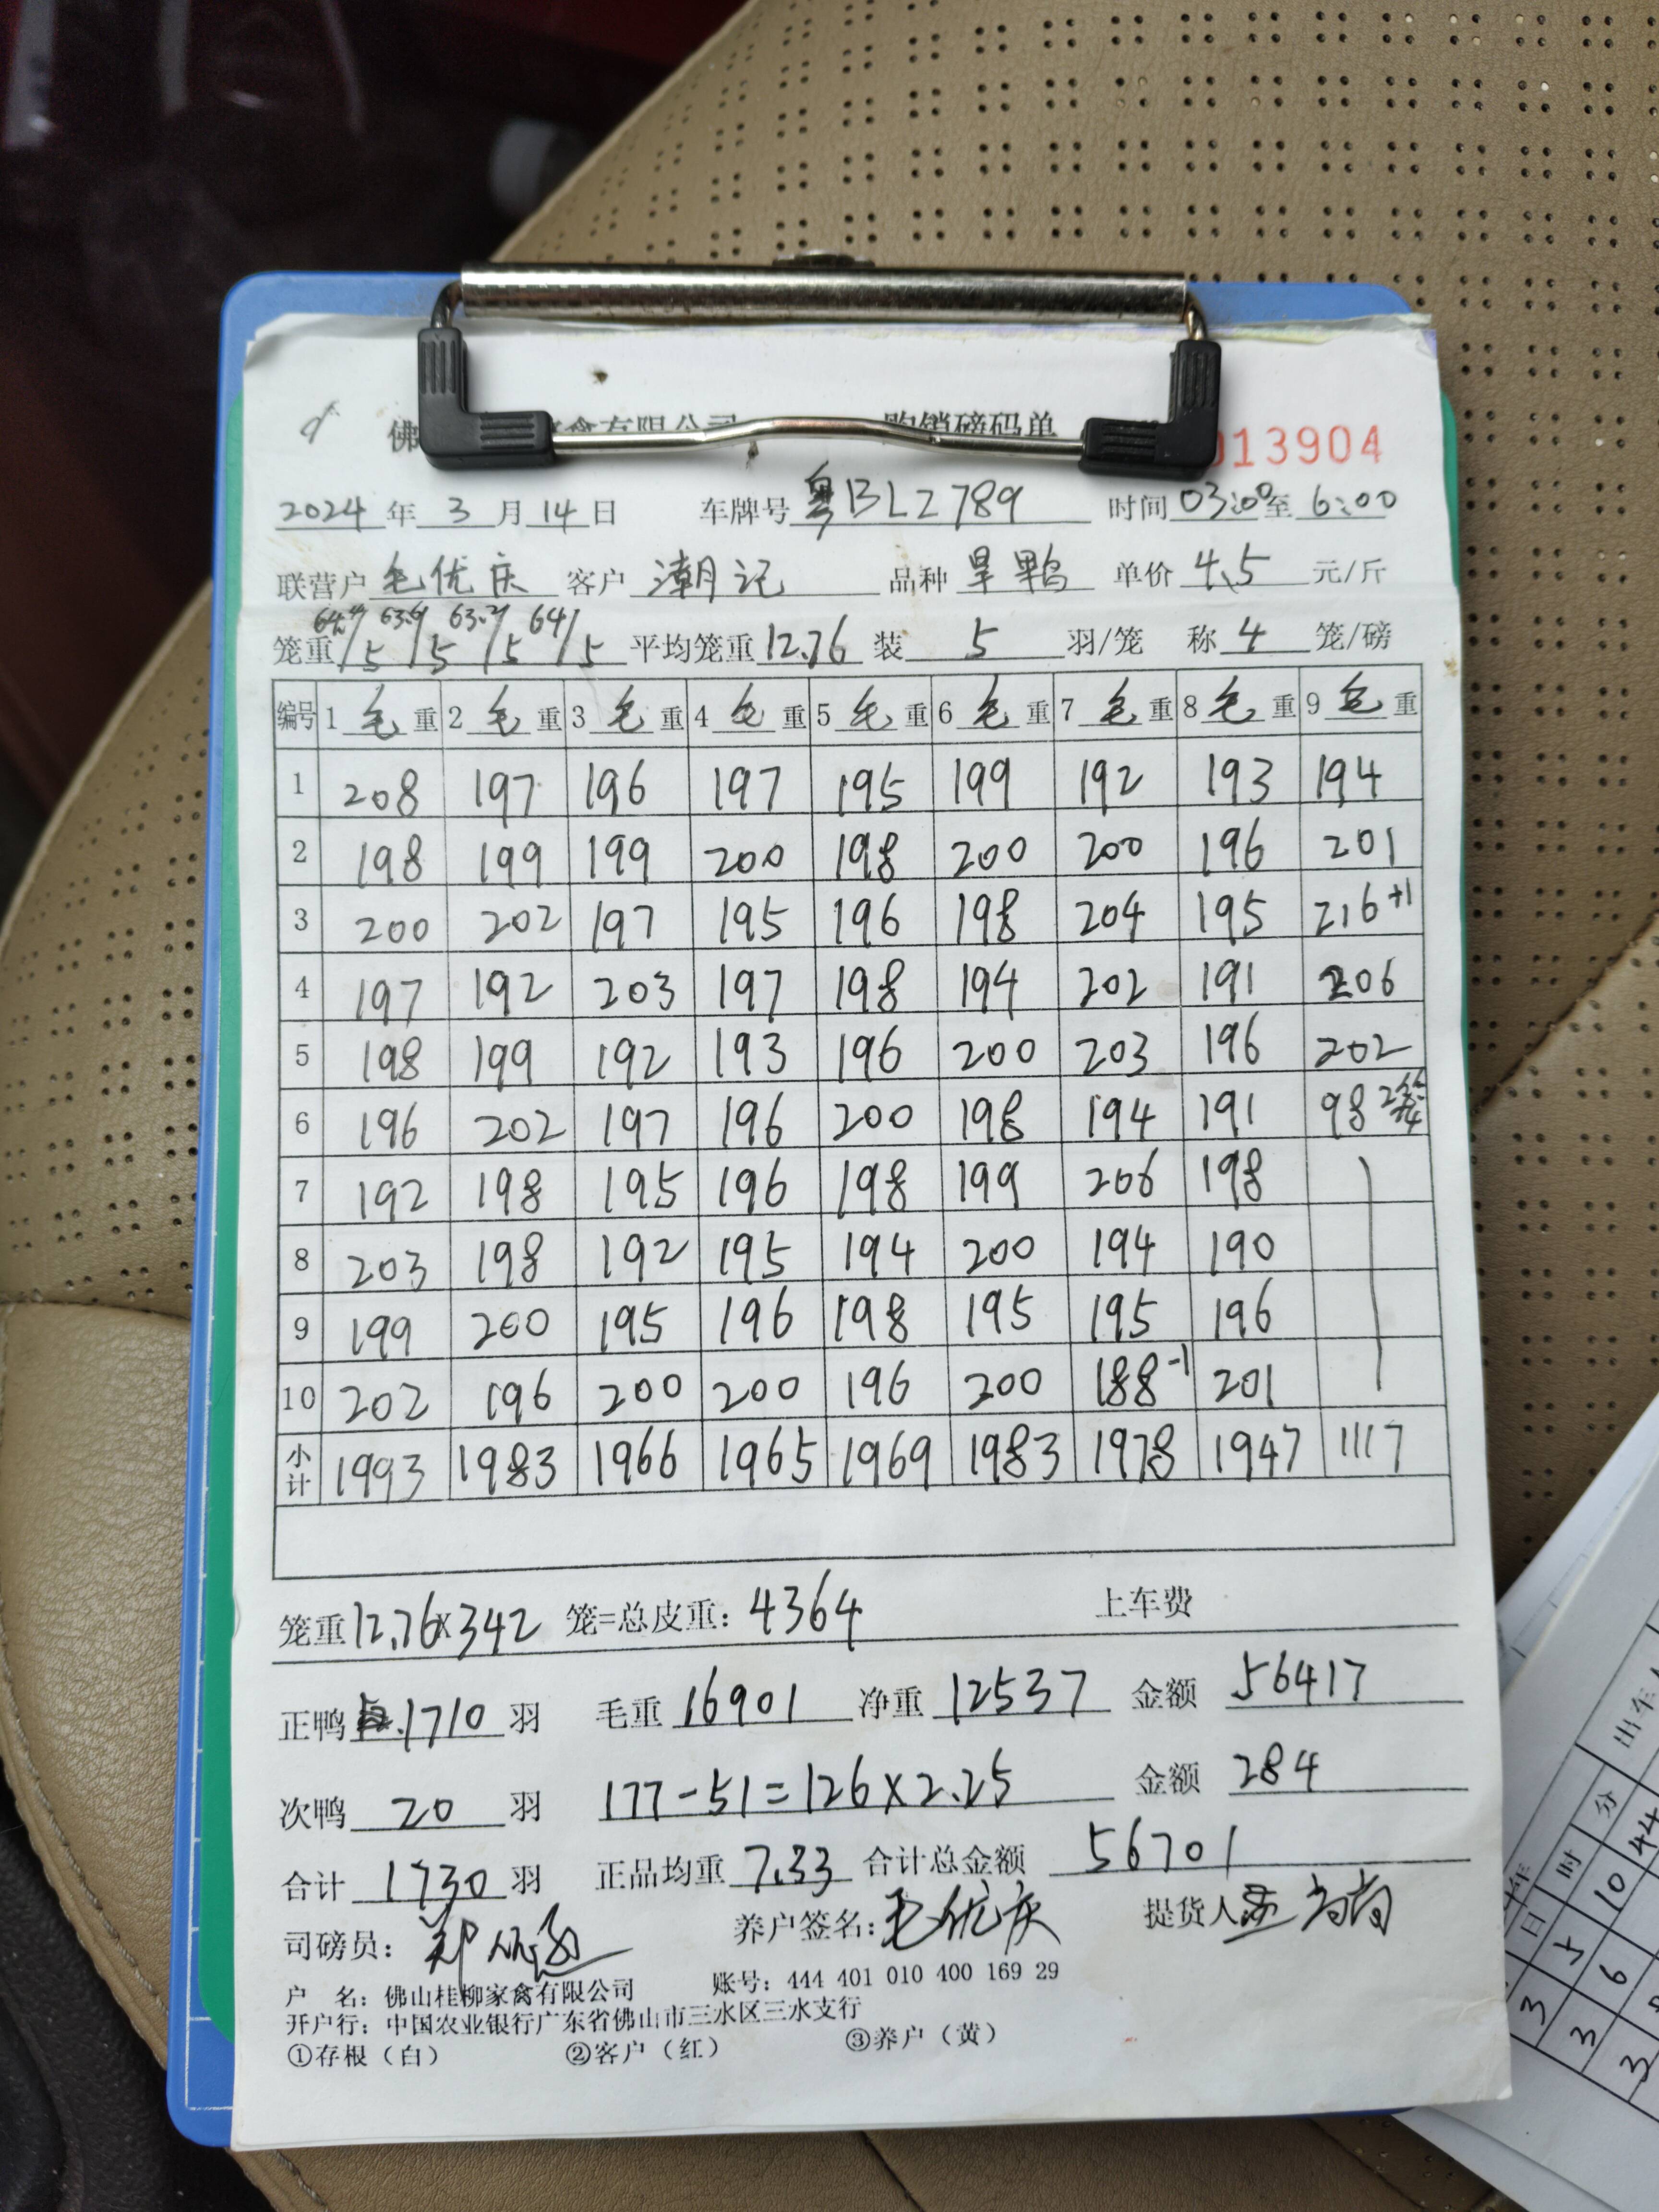 佛 家禽有限公司 购销磅码单 013904
2024年3月14日 车牌号粤BLZ789 时间03:00至6:00
联营户毛优庆 客户潮记 品种旱鸭 单价4.5元/斤
笼重64.4/5 63.6/5 63.2/5 64/5 平均笼重12.76 装5羽/笼 称4笼/磅
编号 1毛重 2毛重 3毛重 4毛重 5毛重 6毛重 7毛重 8毛重 9毛重
1 208 197 196 197 195 199 192 193 194
2 198 199 199 200 198 200 200 196 201
3 200 202 197 195 196 198 204 195 216+1
4 197 192 203 197 198 194 202 191 206
5 198 199 192 193 196 200 203 196 202
6 196 202 197 196 200 198 194 191 98 2笼
7 192 198 195 196 198 199 206 198
8 203 198 192 195 194 200 194 190
9 199 200 195 196 198 195 195 196
10 202 196 200 200 196 200 188-1 201
小计 1993 1983 1966 1965 1969 1983 1978 1947 1117
笼重12.76×342笼=总皮重:4364 上车费
正鸭1710羽 毛重16901 净重12537 金额56417
次鸭20羽 177-51=126×2.25 金额284
合计1730羽 正品均重7.33 合计总金额56701
司磅员: 养户签名:毛优庆 提货人
户 名:佛山桂柳家禽有限公司 账号:444 401 010 400 169 29
开户行:中国农业银行广东省佛山市三水区三水支行
①存根(白) ②客户(红) ③养户(黄)
出车
分
时 10 44
日 5 6
3 3 3